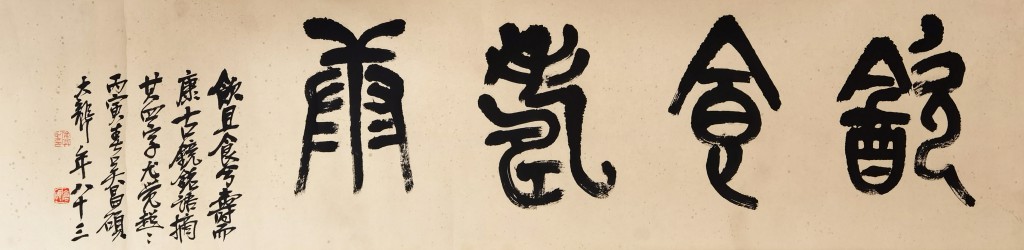 飲食壽康
飲且食兮壽而
康古鏡銘語摘
四字尤覺超〻
丙寅春吳昌碩
大聾年八十三